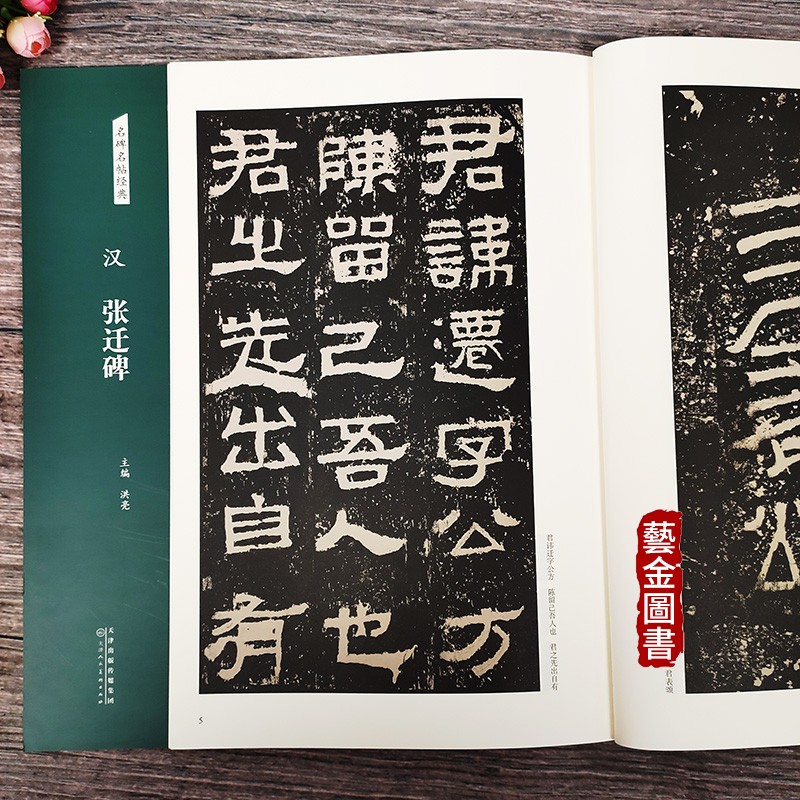 名碑名帖经典
汉 张迁碑
主编 洪亮
天津出版传媒集团
天津人民美术出版社
君諱遷字公方
陳留己吾人也
君之先出自有
君讳迁字公方 陈留己吾人也 君之先出自有
5
君表颂
藝金圖書